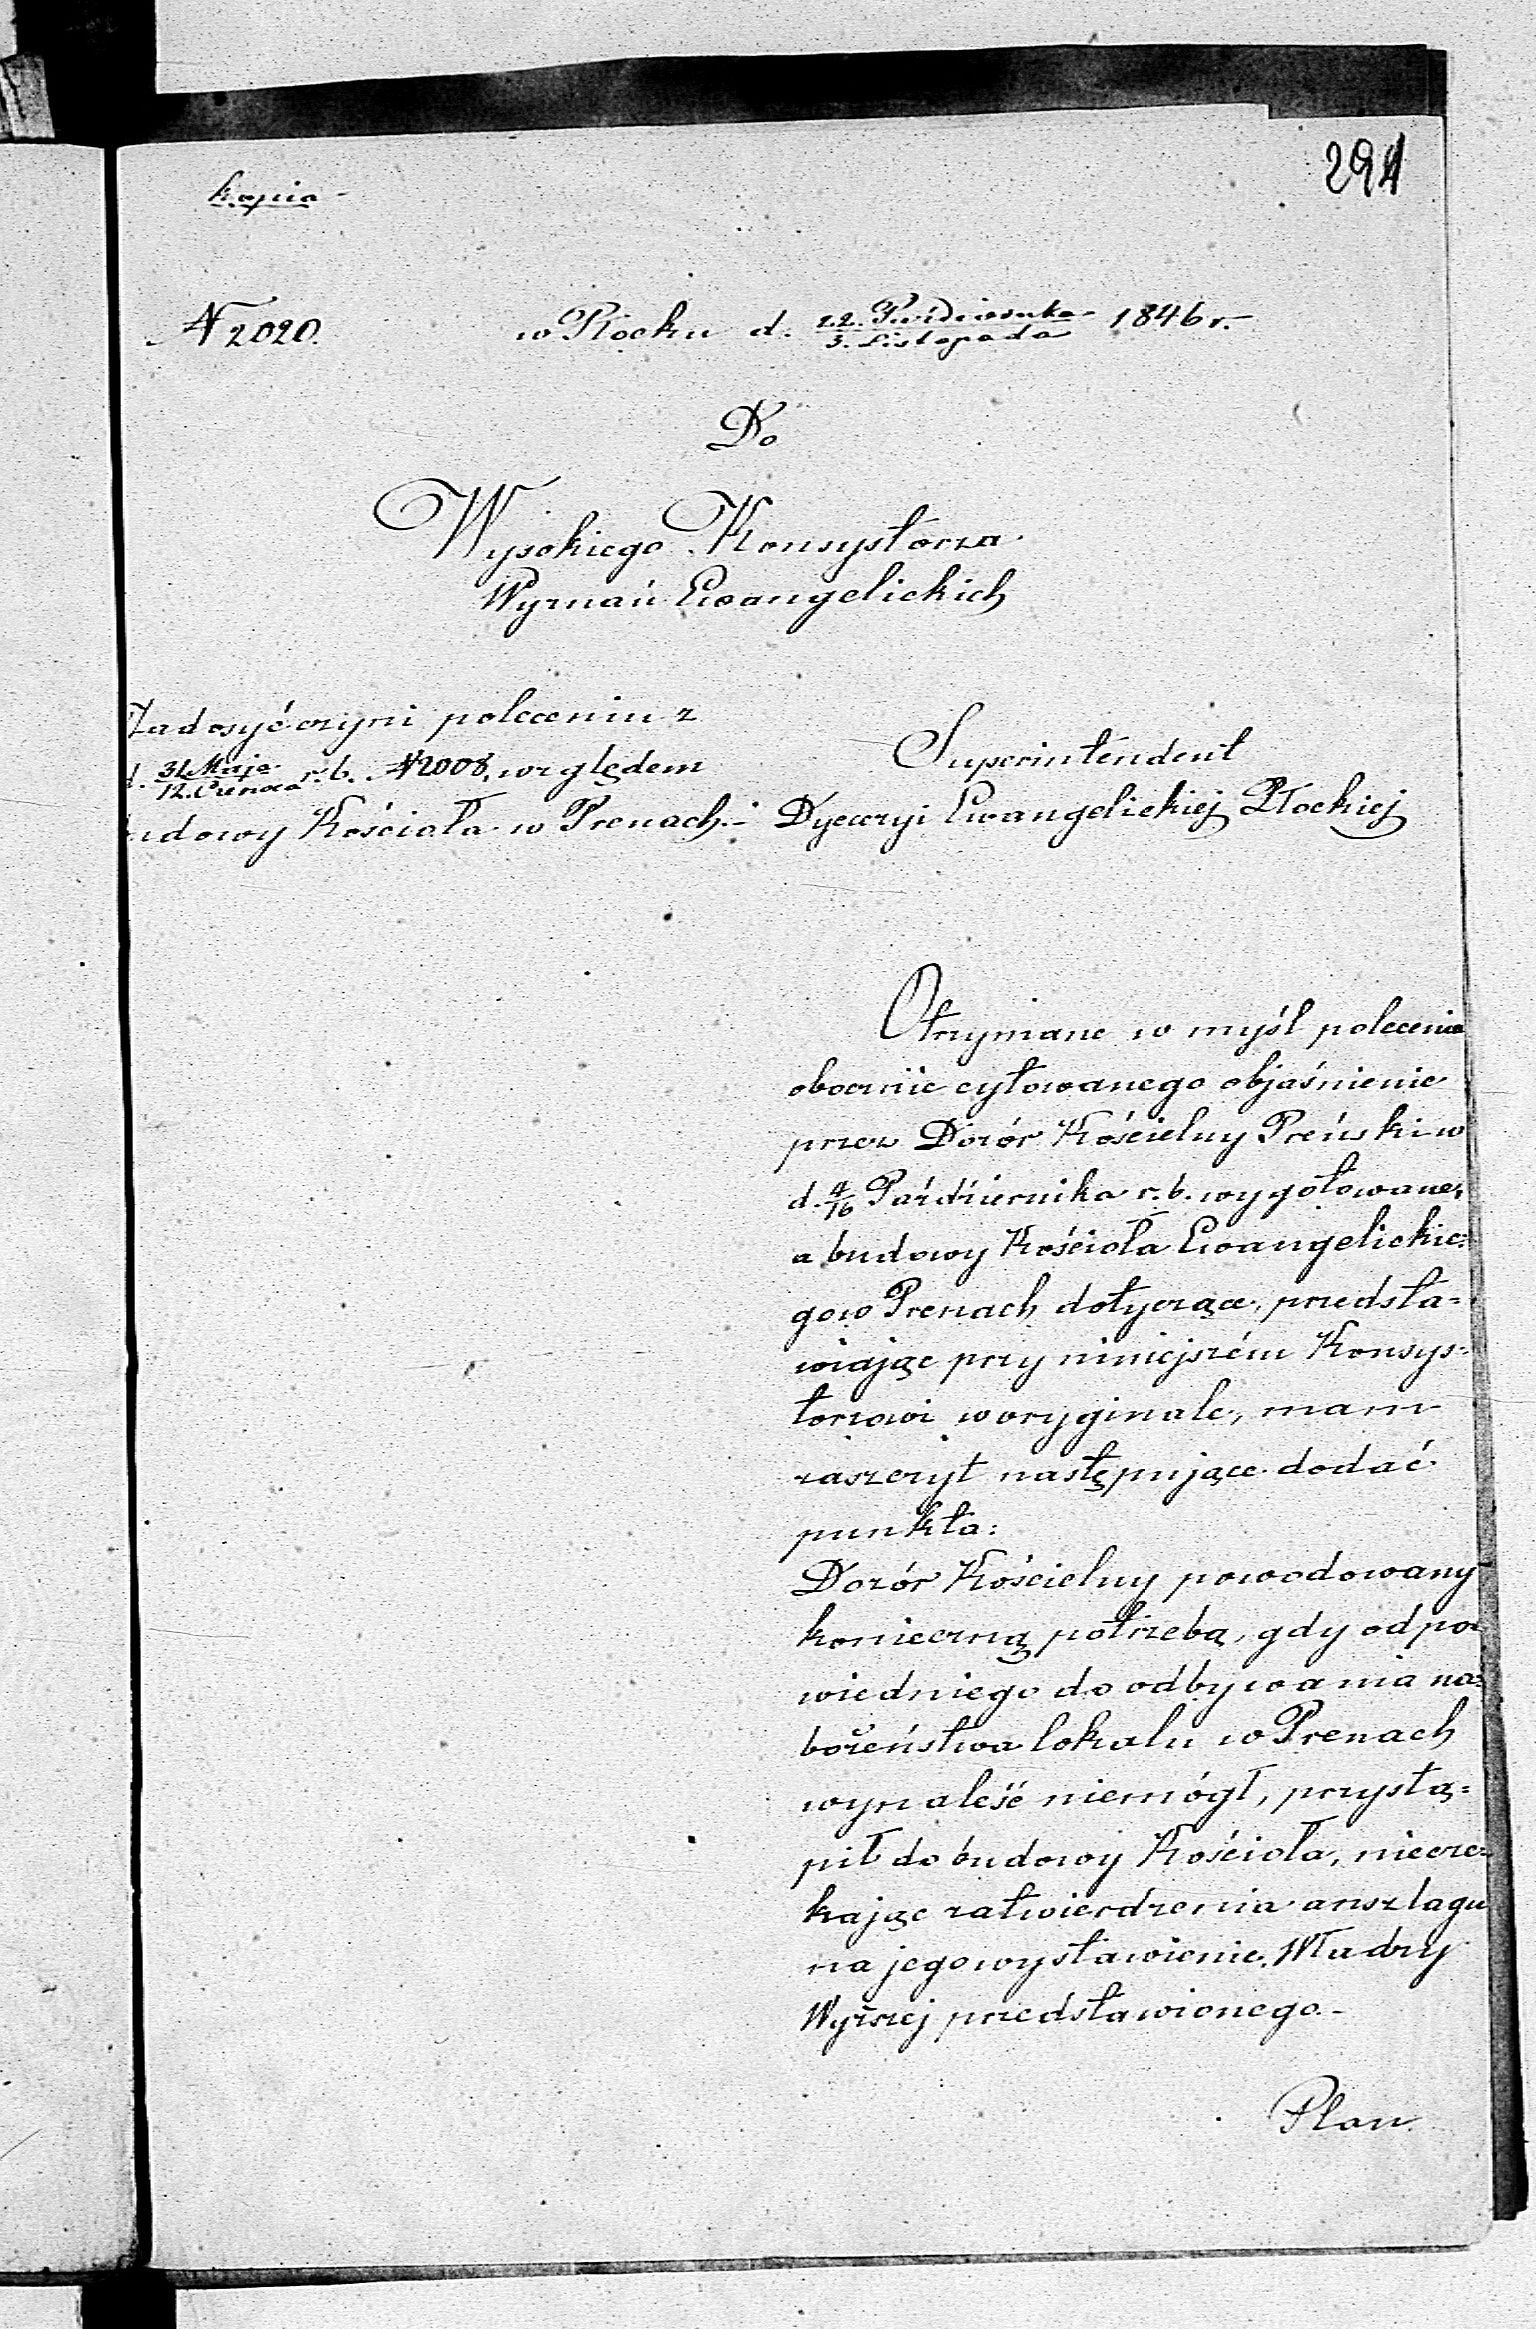 294
kopia
N 2020. w Płocku d. 22. Października / 3. Listopada 1846 r.
Do
Wysokiego Konsystorza
Wyznań Ewangelickich
Zadosyć czyni poleceniu z
d. 31 Maja / 12. Czerwca r. b. N 2008, względem
budowy Kościoła w Prenach.-
Superintendent
Dyecezyi Ewangelickiej Płockiej
Otrzymane w myśl polecenia
obocznie cytowanego objaśnienie
przez Dozór Kościelny Preński w
d. 4/16 Października r. b. wygotowane,
a budowy Kościoła Ewangelickie:
go w Prenach dotyczące, przedsta=
wiając przy niniejszém Konsys=
torzowi w oryginale, mam
zaszczyt następujące dodać
punkta:
Dozór Kościelny powodowany
konieczną potrzebą, gdy odpo=
wiedniego do odbywania na=
bożeństwa lokalu w Prenach
wynaleść niemógł, przystą=
pił do budowy Kościoła, niecze=
kając zatwierdzenia anszlagu
na jego wystawienie, Władzy
Wyższej przedstawionego.-
Plan